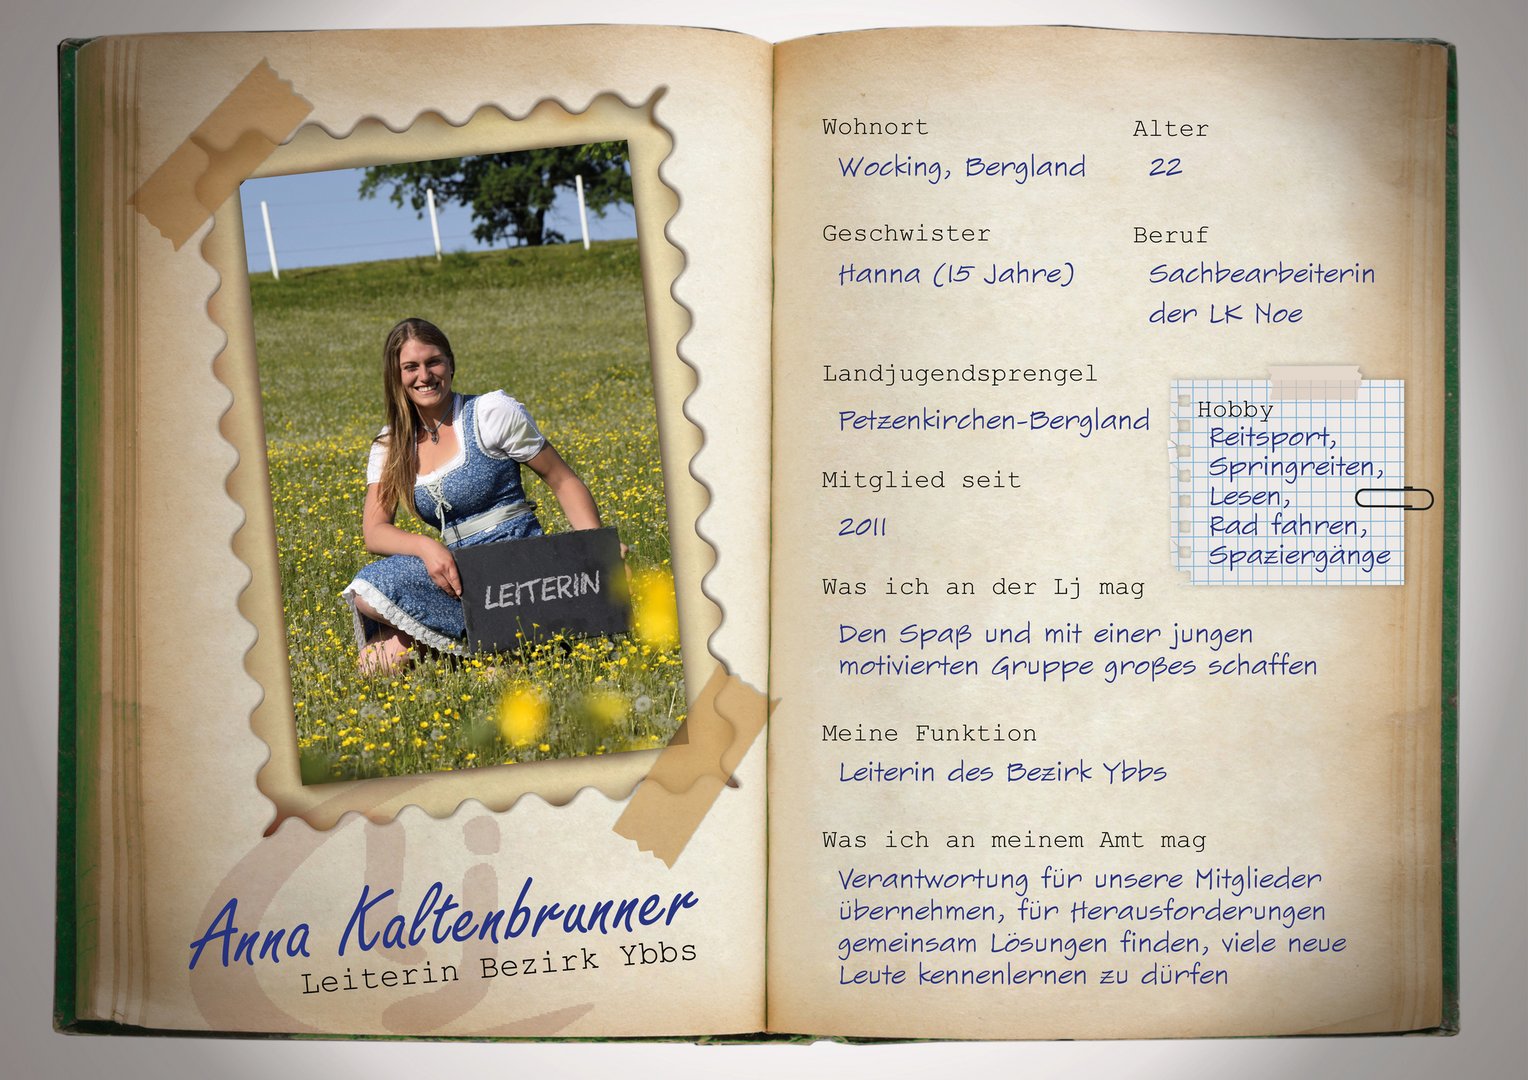 LEITERIN
Anna Kaltenbrunner
Leiterin Bezirk Ybbs
Lj
Wohnort
Wocking, Bergland
Alter
22
Geschwister
Hanna (15 Jahre)
Beruf
Sachbearbeiterin
der LK Noe
Landjugendsprengel
Petzenkirchen-Bergland
Hobby
Reitsport,
Springreiten,
Lesen,
Rad fahren,
Spaziergänge
Mitglied seit
2011
Was ich an der Lj mag
Den Spaß und mit einer jungen
motivierten Gruppe großes schaffen
Meine Funktion
Leiterin des Bezirk Ybbs
Was ich an meinem Amt mag
Verantwortung für unsere Mitglieder
übernehmen, für Herausforderungen
gemeinsam Lösungen finden, viele neue
Leute kennenlernen zu dürfen